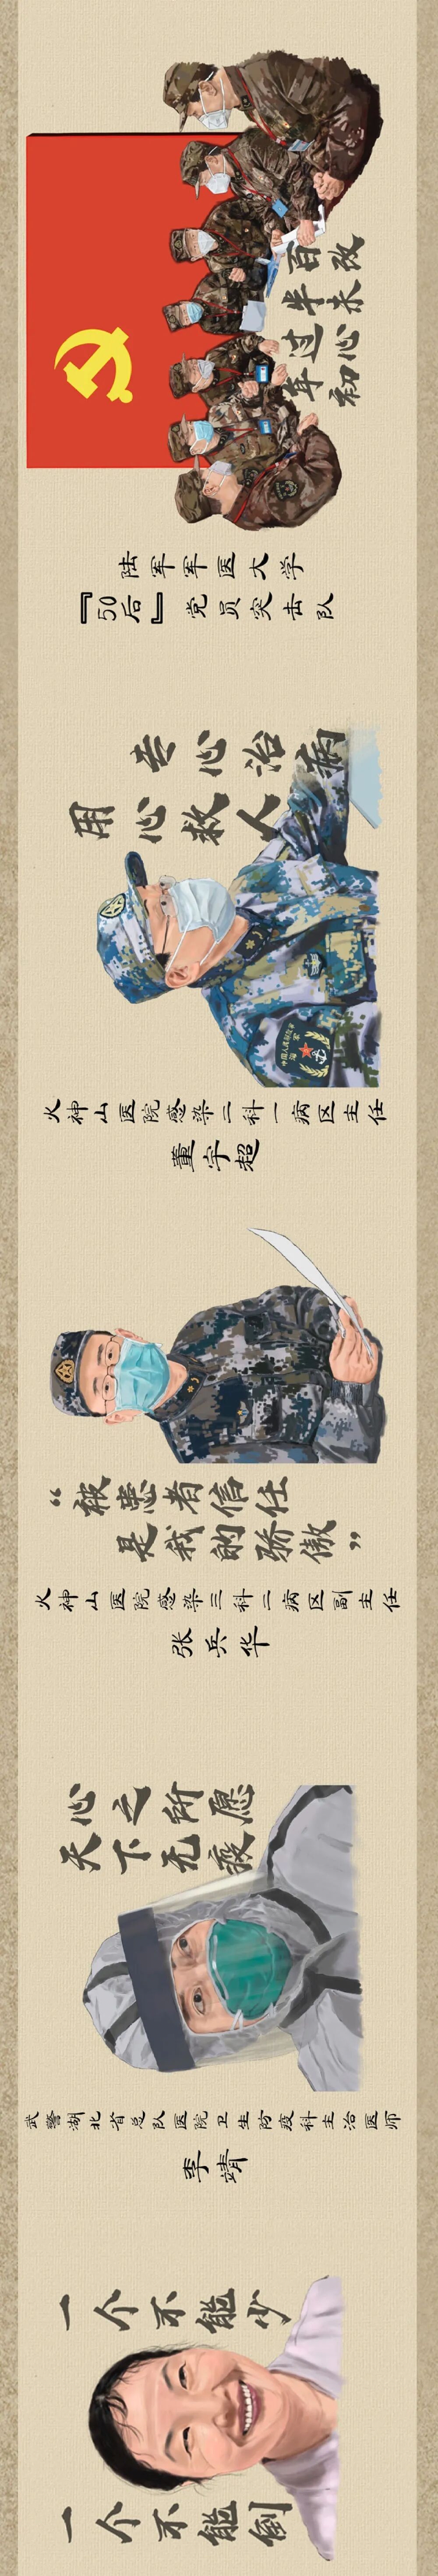 年过半百
初心未改
陆军军医大学
『50后』党员突击队
专心治病
用心救人
中国人民解放军
海军
火神山医院感染二科一病区主任
董宇超
“被患者信任
是我的骄傲”
火神山医院感染三科二病区副主任
张兵华
心之所愿
天下无疫
武警湖北省总队医院卫生防疫科主治医师
李靖
一个不能少
一个不能倒